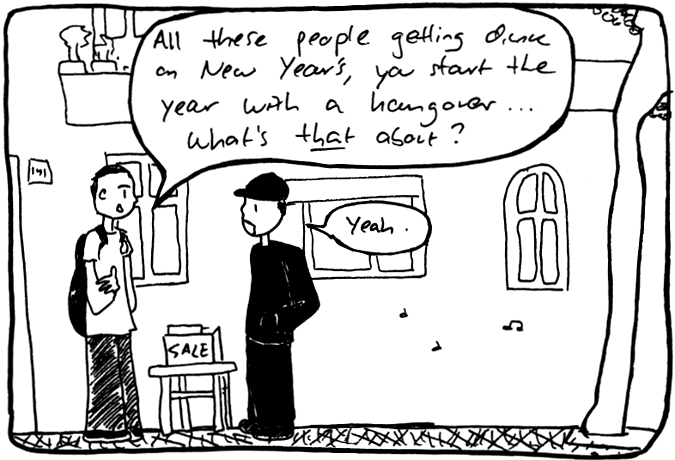 All these people getting drunk
on New Year's, you start the
year with a hangover...
What's that about?
Yeah.
191
SALE